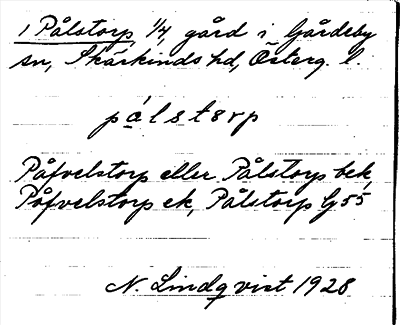 1 Pålstorp 1/4 gård i Gårdeby
sn, Skärkinds hd, Österg. l.
pálstorp
Påfvelstorp eller Pålstorp bek,
Påfvelstorp ek, Pålstorp G 55
N. Lindqvist 1928